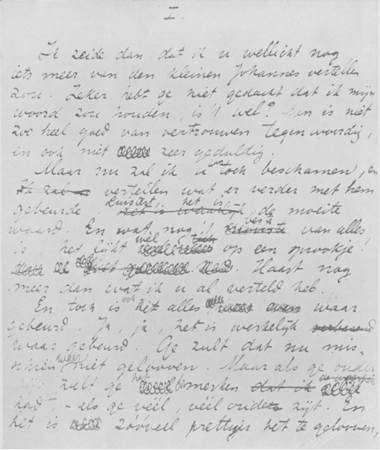 I.
Ik zeide dan dat ik u wellicht nog
iets meer van den kleinen Johannes vertellen
zou. Zeker hebt ge niet gedacht dat ik mijn
woord zou houden, is 't wel? Men is niet
zoo heel goed van vertrouwen tegenwoordig,
en ook niet zeer geduldig.
Maar nu zal ik u toch beschamen, en
Ik zal vertellen wat er verder met hem
gebeurde Luister het is de moeite
waard. En wat nog 't van alles
is het lijkt wel op een sprookje!
Haast nog
meer dan wat ik u al verteld heb.
En toch is ook het alles waar
gebeurd. Ja, ja, het is werkelijk
waar gebeurd. Ge zult dat nu mis-
schien weer niet gelooven. Maar als ge ouder
zult ge het merken dat ik
had, - als ge véél, véél ouder zijt. En
het is zóóveel prettiger het te gelooven,